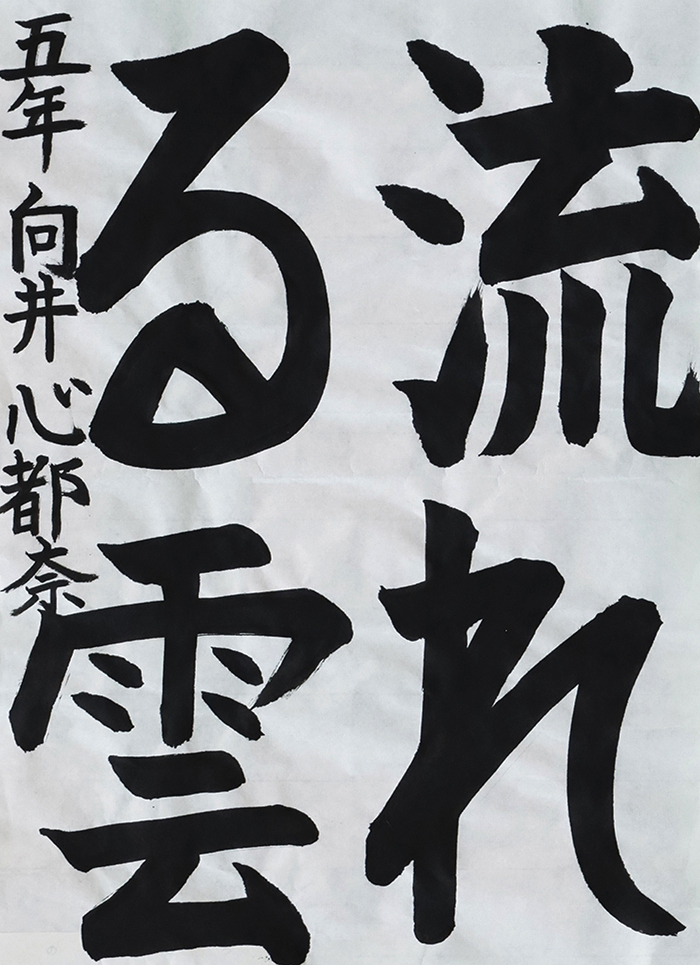 流れ
る雲
五年 向井 心都奈